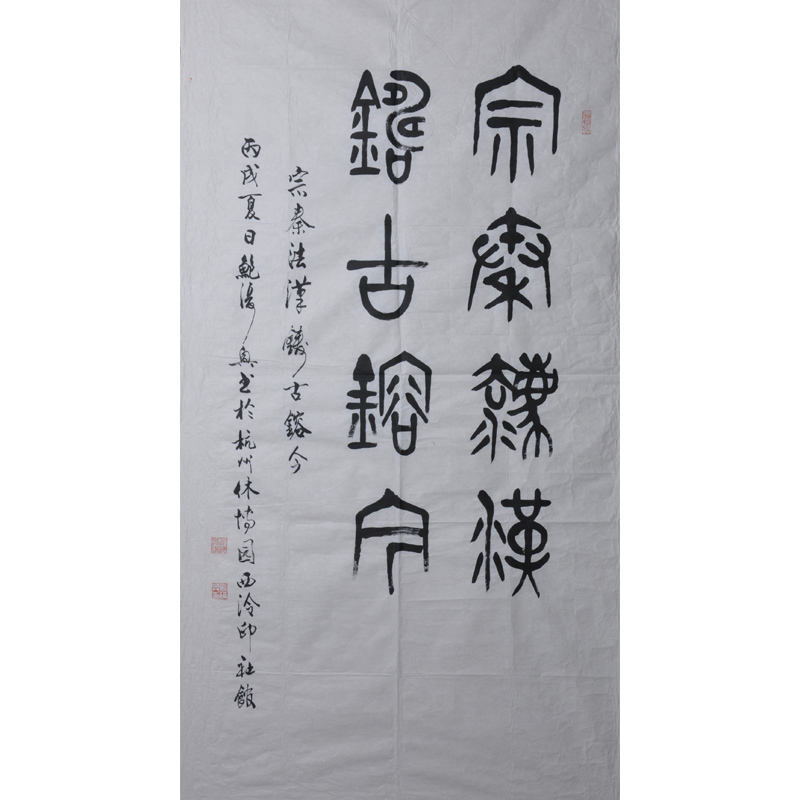 宗秦灋漢
鑄古鎔今
宗秦法漢鑄古鎔今
丙戌夏日鮑復興書於杭州休博园西泠印社館